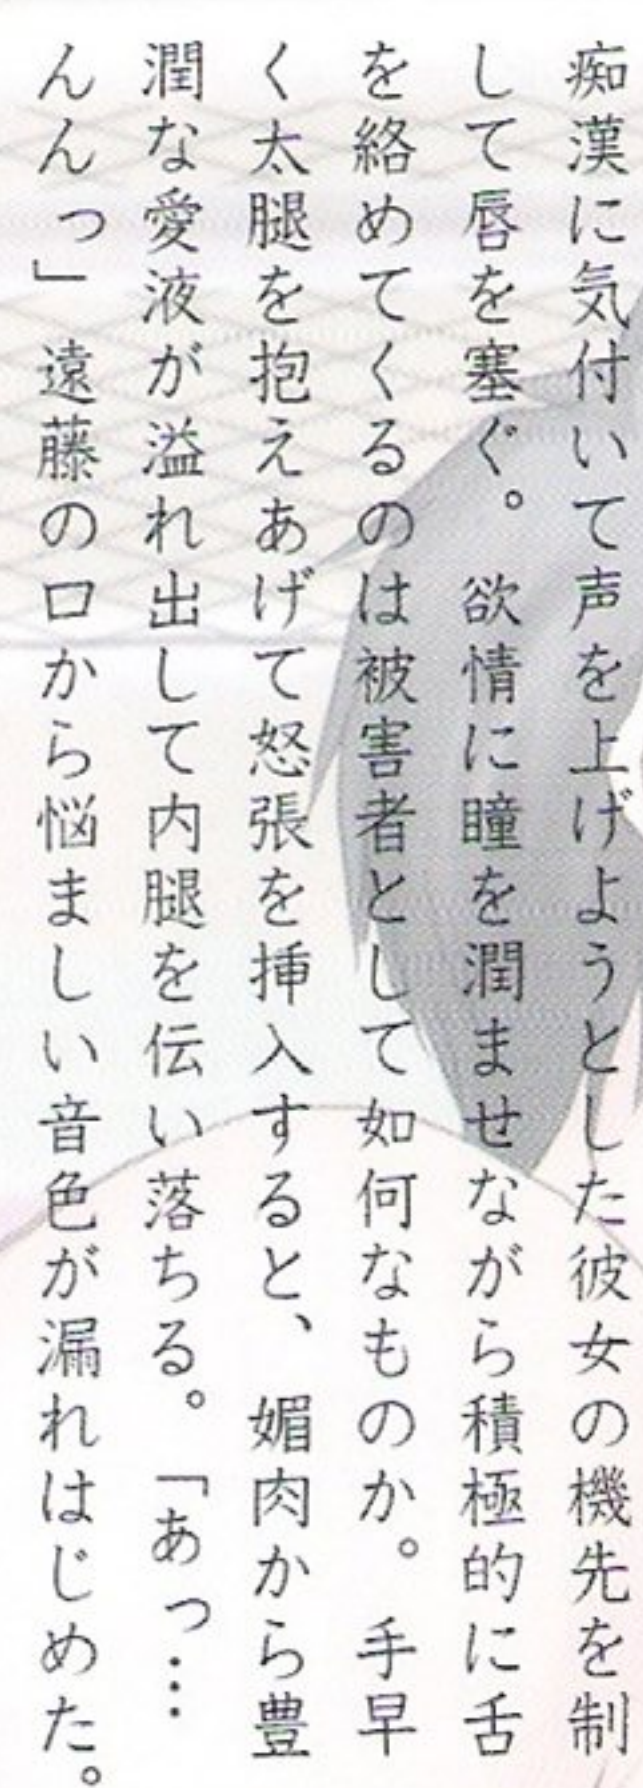 痴漢に気付いて声を上げようとした彼女の機先を制
して唇を塞ぐ。欲情に瞳を潤ませながら積極的に舌
を絡めてくるのは被害者として如何なものか。手早
く太腿を抱えあげて怒張を挿入すると、媚肉から豊
潤な愛液が溢れ出して内腿を伝い落ちる。「あっ…
んんっ」遠藤の口から悩ましい音色が漏れはじめた。